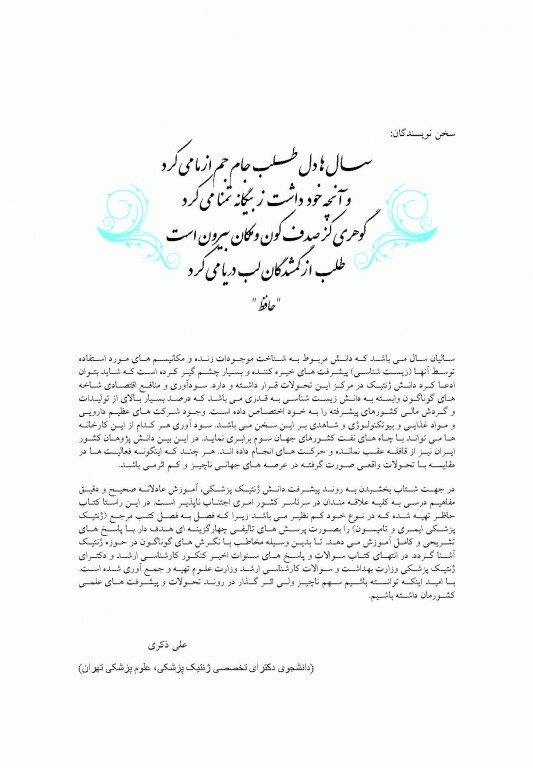 سخن نویسندگان:
سال ها دل طلب جام جم از ما می کرد
و آنچه خود داشت ز بیگانه تمنا می کرد
گوهری کز صدف کون و مکان بیرون است
طلب از گمشدگان لب دریا می کرد
"حافظ"
سالیان سال می باشد که دانش مربوط به شناخت موجودات زنده و مکانیسم های مورد استفاده
توسط آنها (زیست شناسی) پیشرفت های خیره کننده و بسیار چشم گیر کرده است که شاید بتوان
ادعا کرد دانش ژنتیک در مرکز این تحولات قرار داشته و دارد. سودآوری و منافع اقتصادی شاخه
های گوناگون وابسته به دانش زیست شناسی به قدری می باشد که درصد بسیار بالای از تولیدات
و گردش مالی کشورهای پیشرفته را به خود اختصاص داده است. وجود شرکت های عظیم دارویی
و مواد غذایی و بیوتکنولوژی و شاهدی بر این سخن می باشد. سود آوری هر کدام از این کارخانه
ها می تواند با چاه های نفت کشورهای جهان سوم برابری نماید. در این بین دانش پژوهان کشور
ایران نیز از قافله عقب نمانده و حرکت های انجام داده اند. هر چند که اینگونه فعالیت ها در
مقایسه با تحولات واقعی صورت گرفته در عرصه های جهانی ناچیز و کم اثر می باشد.
در جهت شتاب بخشیدن به روند پیشرفت دانش ژنتیک پزشکی، آموزش عادلانه صحیح و دقیق
مفاهیم درسی به کلیه علاقه مندان در سرتاسر کشور امری اجتناب ناپذیر است. در این راستا کتاب
حاظر تهیه شده که در نوع خود کم نظیر می باشد زیرا که فصل به فصل کتب مرجع (ژنتیک
پزشکی ایمری و تامپسون) را بصورت پرسش های تالیفی چهارگزینه ای هدف دار با پاسخ های
تشریحی و کامل آموزش می دهد. تا بدین وسیله مخاطب با نگرش های گوناگون در حوزه ژنتیک
آشنا گردد. در انتهای کتاب سوالات و پاسخ های سنوات اخیر کنکور کارشناسی ارشد و دکترای
ژنتیک پزشکی وزارت بهداشت و سوالات کارشناسی ارشد وزارت علوم تهیه و جمع آوری شده است.
با امید اینکه توانسته باشیم سهم ناچیز ولی اثر گذار در روند تحولات و پیشرفت های علمی
کشورمان داشته باشیم.
علی ذکری
(دانشجوی دکترای تخصصی ژنتیک پزشکی، علوم پزشکی تهران)